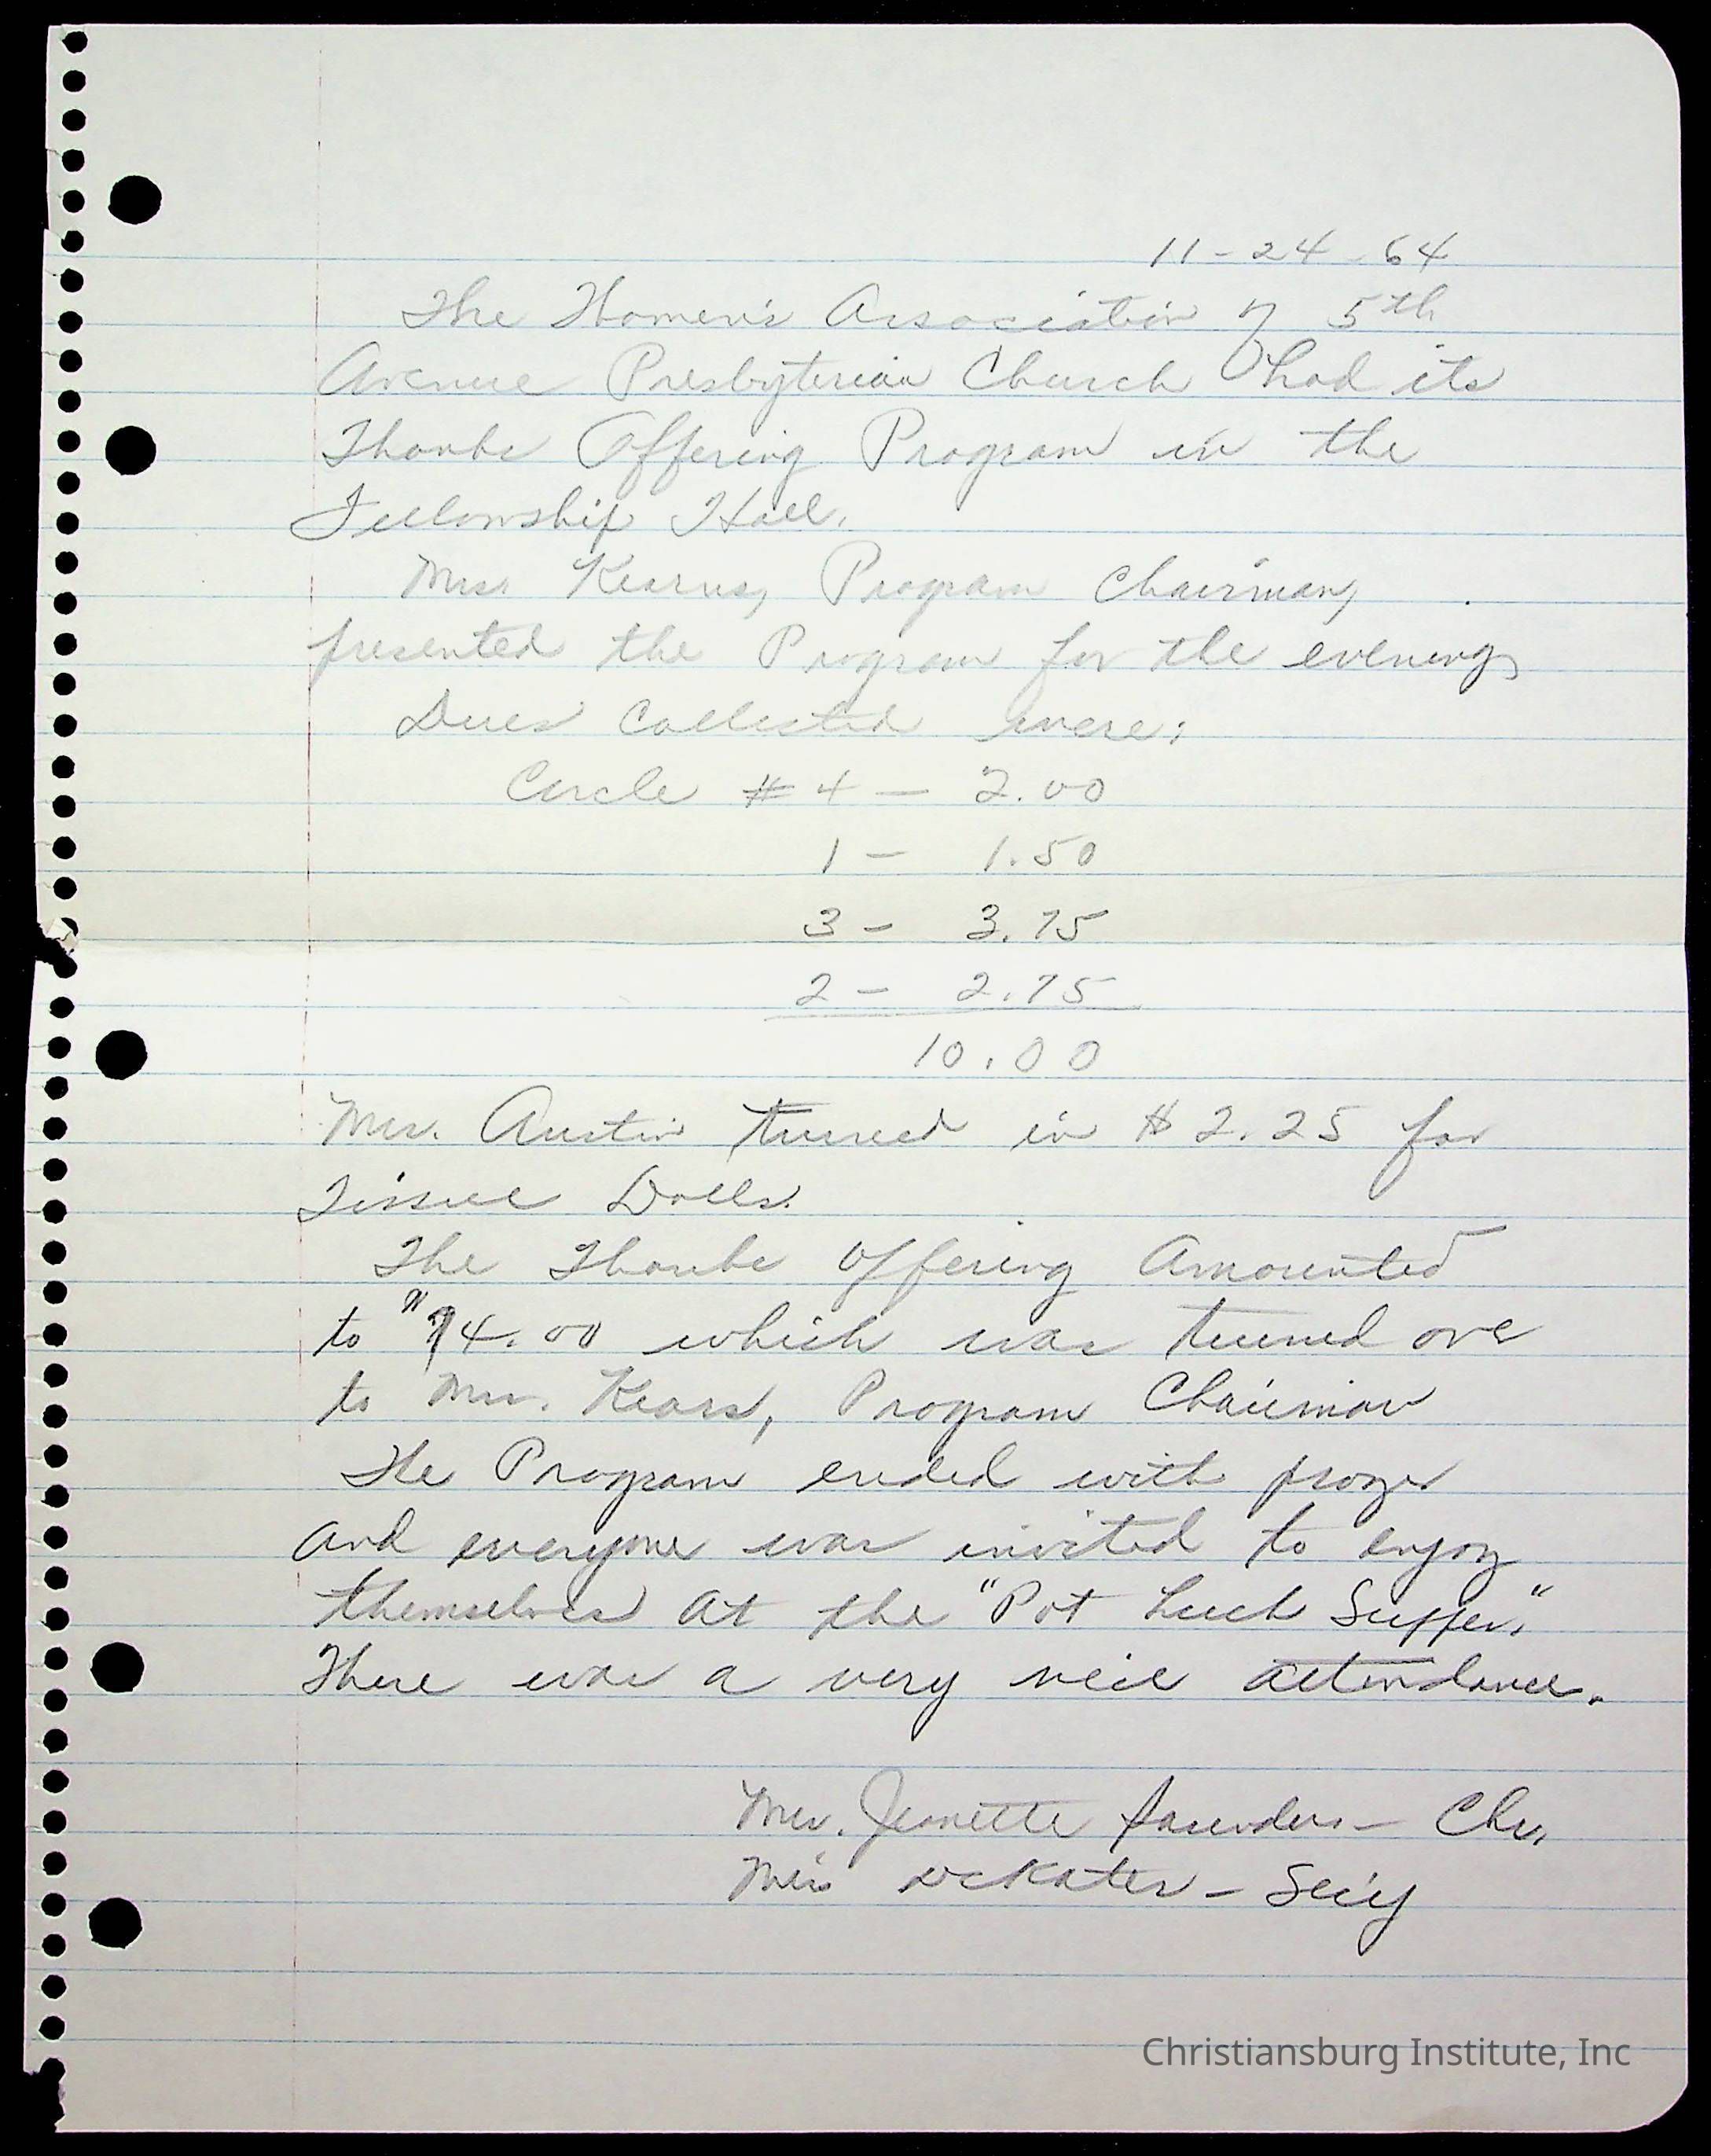 11-24-64
The Women's Association of 5th
Avenue Presbyterian Church had its
Thanks Offering Program in the
Fellowship Hall.
Mrs. Kearns, Program Chairman,
presented the Program for the evening
Dues Collected were:
Circle #4 - 2.00
1 - 1.50
3 - 3.75
2 - 2.75
10.00
Mrs. Austin turned in $2.25 for
Tissue Dolls.
The Thanks Offering Amounted
to 4.00 which was turned over
to Mrs. Kears, Program Chairman
The Program ended with prayer
and everyone was invited to enjoy
themselves at the "Pot Luck Supper."
There was a very nice attendance.
Mrs. Jeanette Saunders - Chr.
- Sec'y
Christiansburg Institute, Inc